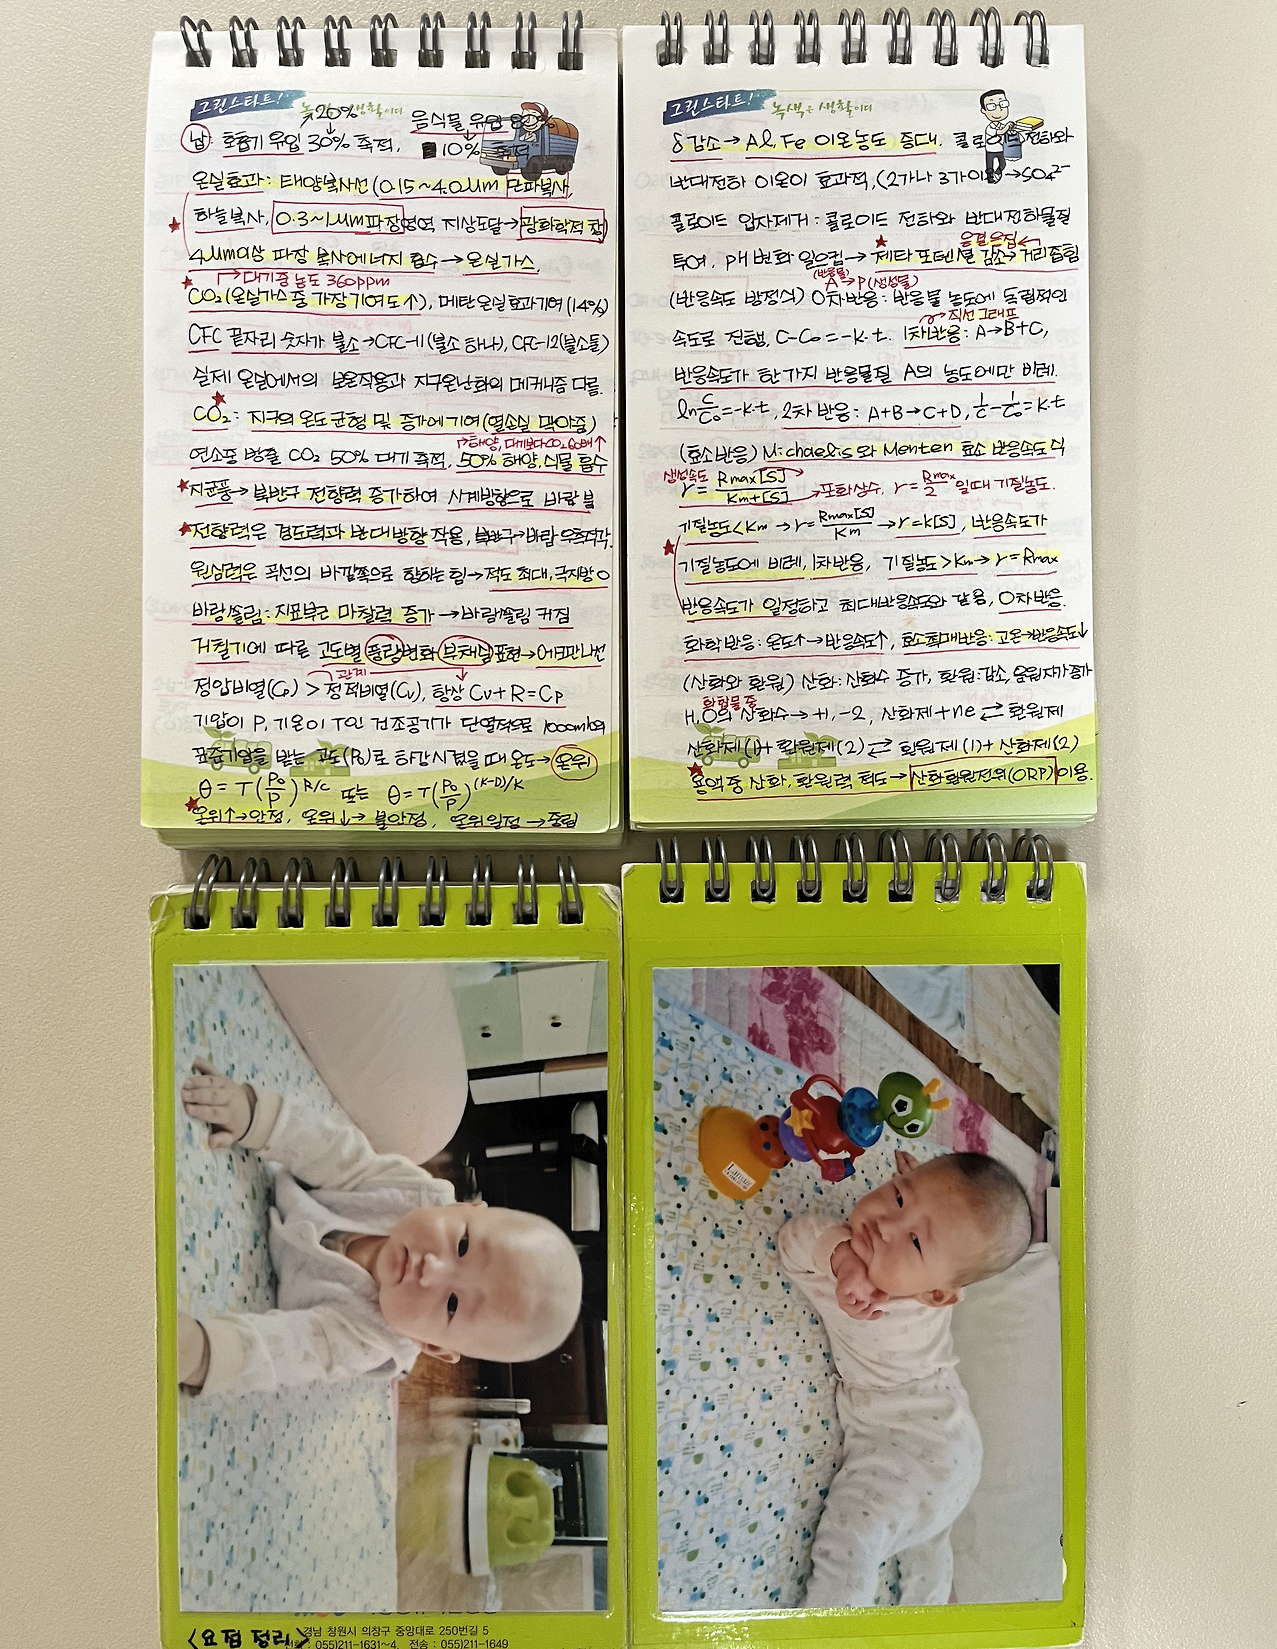 그린스타트!
20%
음식물 유입
납: 호흡기 유입 30% 축적, 10% 축적
온실효과: 태양복사선(0.15~4.0μm 단파복사,
하늘복사, 0.3~1μm파장영역 지상도달→광화학적 창
4μm이상 파장 복사에너지 흡수→온실가스,
대기중 농도 360ppm
CO₂(온실가스 중 가장 기여도↑), 메탄온실효과기여(14%)
CFC 끝자리 숫자가 불소→CFC-11(불소 하나), CFC-12(불소둘)
실제 온실에서의 보온작용과 지구온난화의 메커니즘 다름.
CO₂: 지구의 온도균형 및 증가에 기여(열손실 막아줌)
해양, 대기보다CO₂ 60배↑
연소중 방출 CO₂ 50% 대기 축적, 50% 해양, 식물 흡수
지균풍→북반구 전향력 증가하여 시계방향으로 바람 붊
전향력은 경도력과 반대방향 작용, 북반구→바람 우측직각.
원심력은 곡선의 바깥쪽으로 향하는 힘→적도 최대, 극지방 0
바람쏠림: 지표부근 마찰력 증가→바람쏠림 커짐
거칠기에 따른 고도별 풍속변화 표현→에크만나선
관계
정압비열(Cp) > 정적비열(Cv), 항상 Cv+R=Cp
기압이 P, 기온이 T인 건조공기가 단열적으로 1000mb의
표준기압을 받는 고도(P₀)로 하강시켰을 때 온도→온위
θ=T(P₀/P)^R/C 또는 θ=T(P₀/P)^(K-D)/K
온위↑→안정, 온위↓→불안정, 온위일정→중립
그린스타트! 녹색은 생활이다
δ감소→Al, Fe 이온농도 증대. 콜로이드전하와
반대전하 이온이 효과적,(2가나 3가이온)→SO4²⁻
콜로이드 입자제거: 콜로이드 전하와 반대전하물질
응결응집
투여, pH 변화 일으킴→제타 포텐셜 감소→거리좁힘
(반응물) A→P(생성물)
(반응속도 방정식) 0차반응: 반응물 농도에 독립적인
직선그래프
속도로 진행, C-C₀=-k·t. 1차반응: A→B+C,
반응속도가 한가지 반응물질 A의 농도에만 비례.
ln C/C₀=-k·t, 2차 반응: A+B→C+D, 1/C-1/C₀=k·t
(효소반응) Michaelis와 Menten 효소 반응속도 식
생성속도
r=Rmax[S]/Km+[S]→포화상수, r=Rmax/2 일때 기질농도.
기질농도<Km→r=Rmax[S]/Km→r=k[S], 반응속도가
기질농도에 비례, 1차반응, 기질농도>Km→r=Rmax
반응속도가 일정하고 최대반응속도와 같음, 0차반응.
화학반응: 온도↑→반응속도↑, 효소촉매반응: 고온→반응속도↓
(산화와 환원) 산화: 산화수 증가, 환원:감소, 음원자가증가
화합물 중
H₂O의 산화수→+1, -2, 산화제+ne⇄환원제
산화제(1)+환원제(2)⇄환원제(1)+산화제(2)
용액중 산화, 환원력 척도→산화환원전위(ORP)이용.
Lamaze
<요점 정리>
경남 창원시 의창구 중앙대로 250번길 5
전화 : 055)211-1631~4, 전송 : 055)211-1649